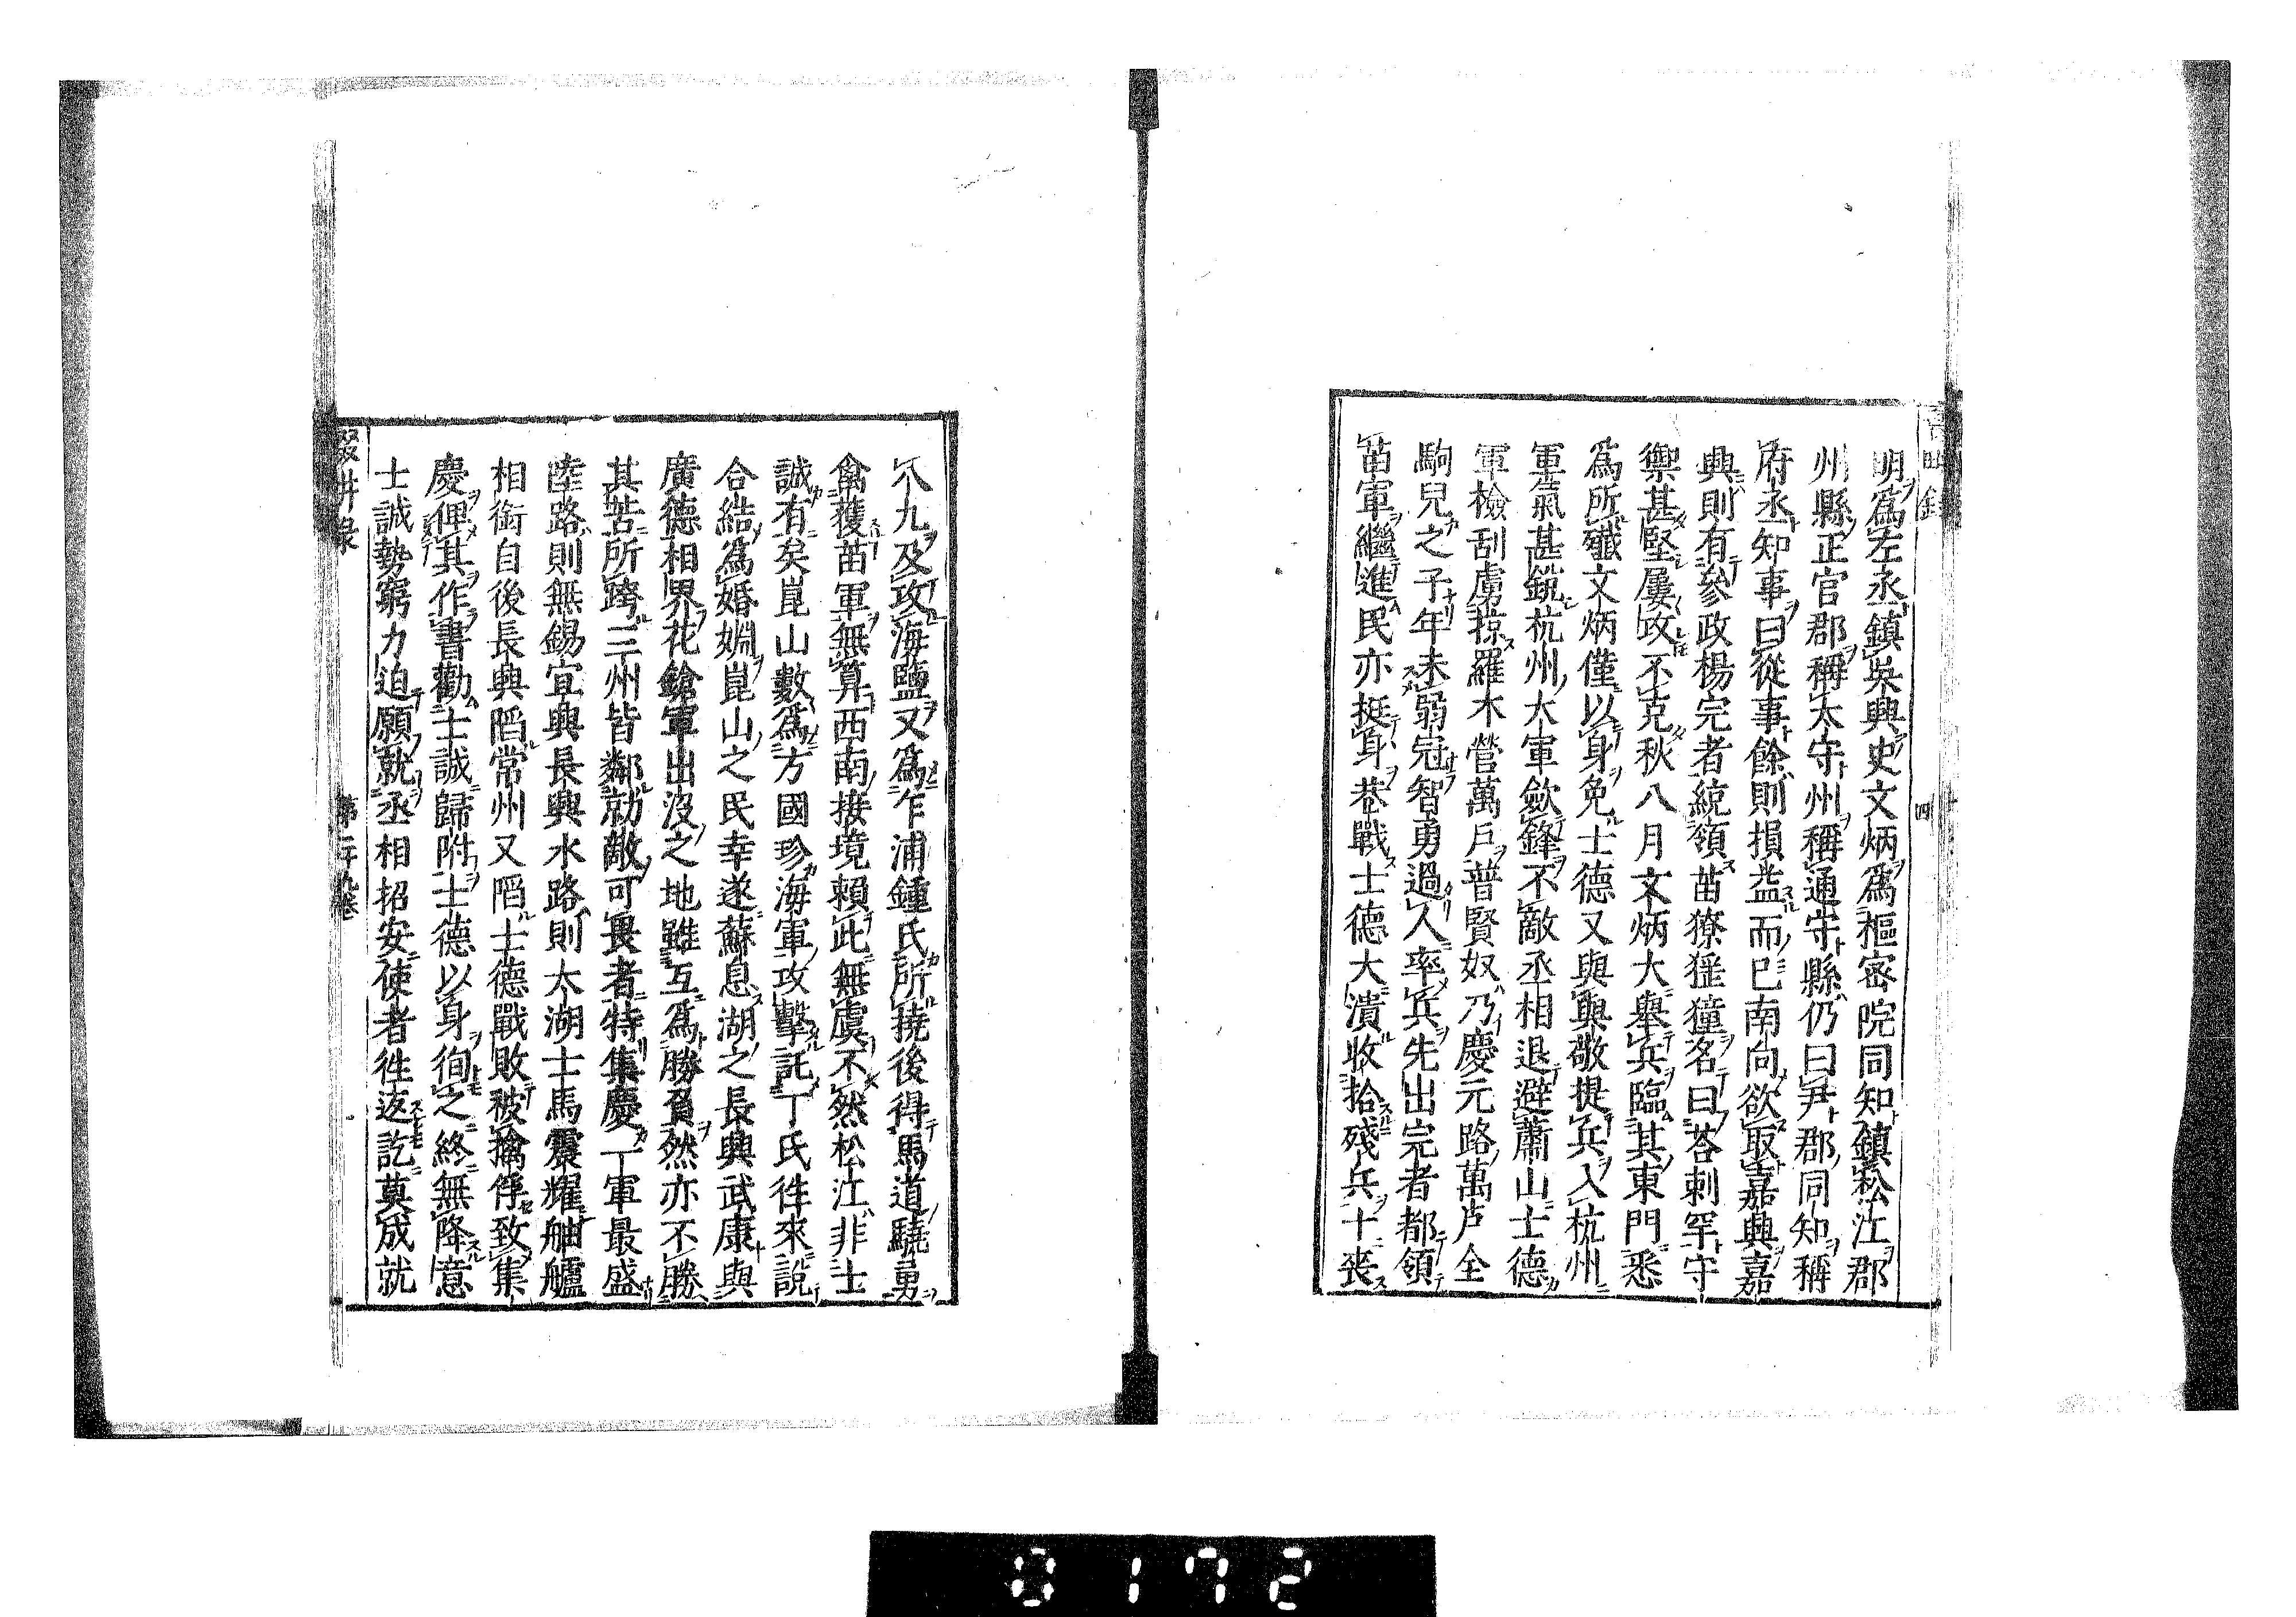 明為左丞鎮吳興史文炳為樞密院同知鎮松江郡
州縣正官郡稱太守州稱通守縣仍曰尹郡同知稱
府丞知事曰從事餘則損益而已南向欲取嘉興嘉
興則有參政楊完者統領苗獠猺獞名曰荅剌罕守
禦甚堅屢攻不克秋八月文炳大舉兵臨其東門悉
為所殲文炳僅以身免士德又與與敬提兵入杭州
軍氣甚銳杭州大軍歛鋒不敵丞相退避蕭山士德
軍檢刮虜掠羅木營萬戶普賢奴乃慶元路萬戶全
駒兒之子年未弱冠智勇過人率兵先出完者都領
苗軍繼進民亦挺身巷戰士德大潰收拾殘兵十喪
四
八九及攻海鹽又為乍浦鍾氏所撓後得馬道驍勇
禽獲苗軍無算西南接境賴此無虞不然松江非士
誠有矣崑山數為方國珍海軍攻擊託丁氏往來說
合結為婚姻崑山之民幸遂蘇息湖之長興武康與
廣德相界花鎗軍出沒之地雖互為勝負然亦不勝
其苦所跨三州皆鄰勍敵可畏者特集慶一軍最盛
陸路則無錫宜興長興水路則太湖士馬震耀舳艫
相銜自後長興陷常州又陷士德戰敗被擒俘致集
慶俾其作書勸士誠歸附士德以身徇之終無降意
士誠勢窮力迫願就丞相招安使者往返訖莫成就
輟耕錄
第二十九卷
0172